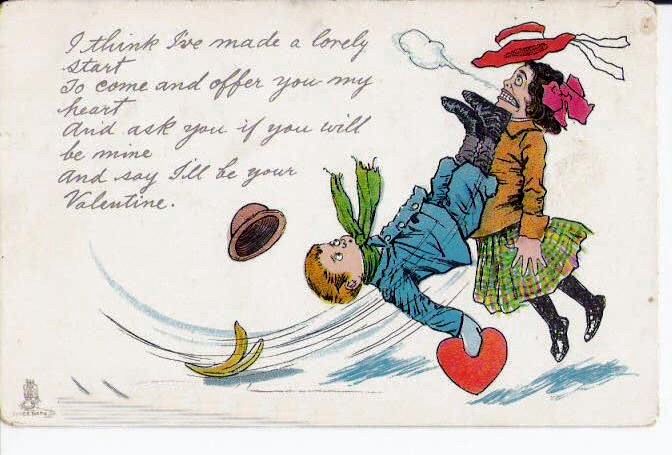 I think I've made a lovely
start
To come and offer you my
heart
And ask you if you will
be mine
And say I'll be your
Valentine.